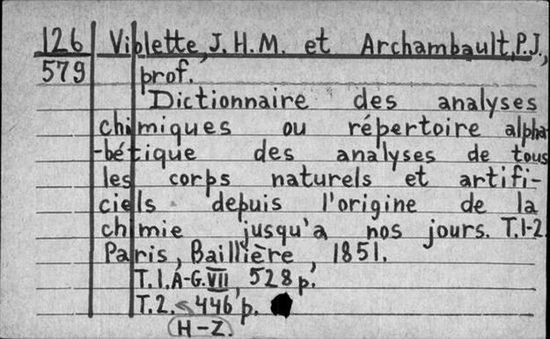 126 Violette, J. H. M. et Archambault, P. J.,
579 prof.
Dictionnaire des analyses
chimiques ou répertoire alpha
-bétique des analyses de tous
les corps naturels et artifi-
ciels depuis l'origine de la
chimie jusqu'a nos jours. T.1-2.
Paris, Baillière, 1851.
T.1.A-G.VII, 528 p.
T.2. 446 p.
H-Z.